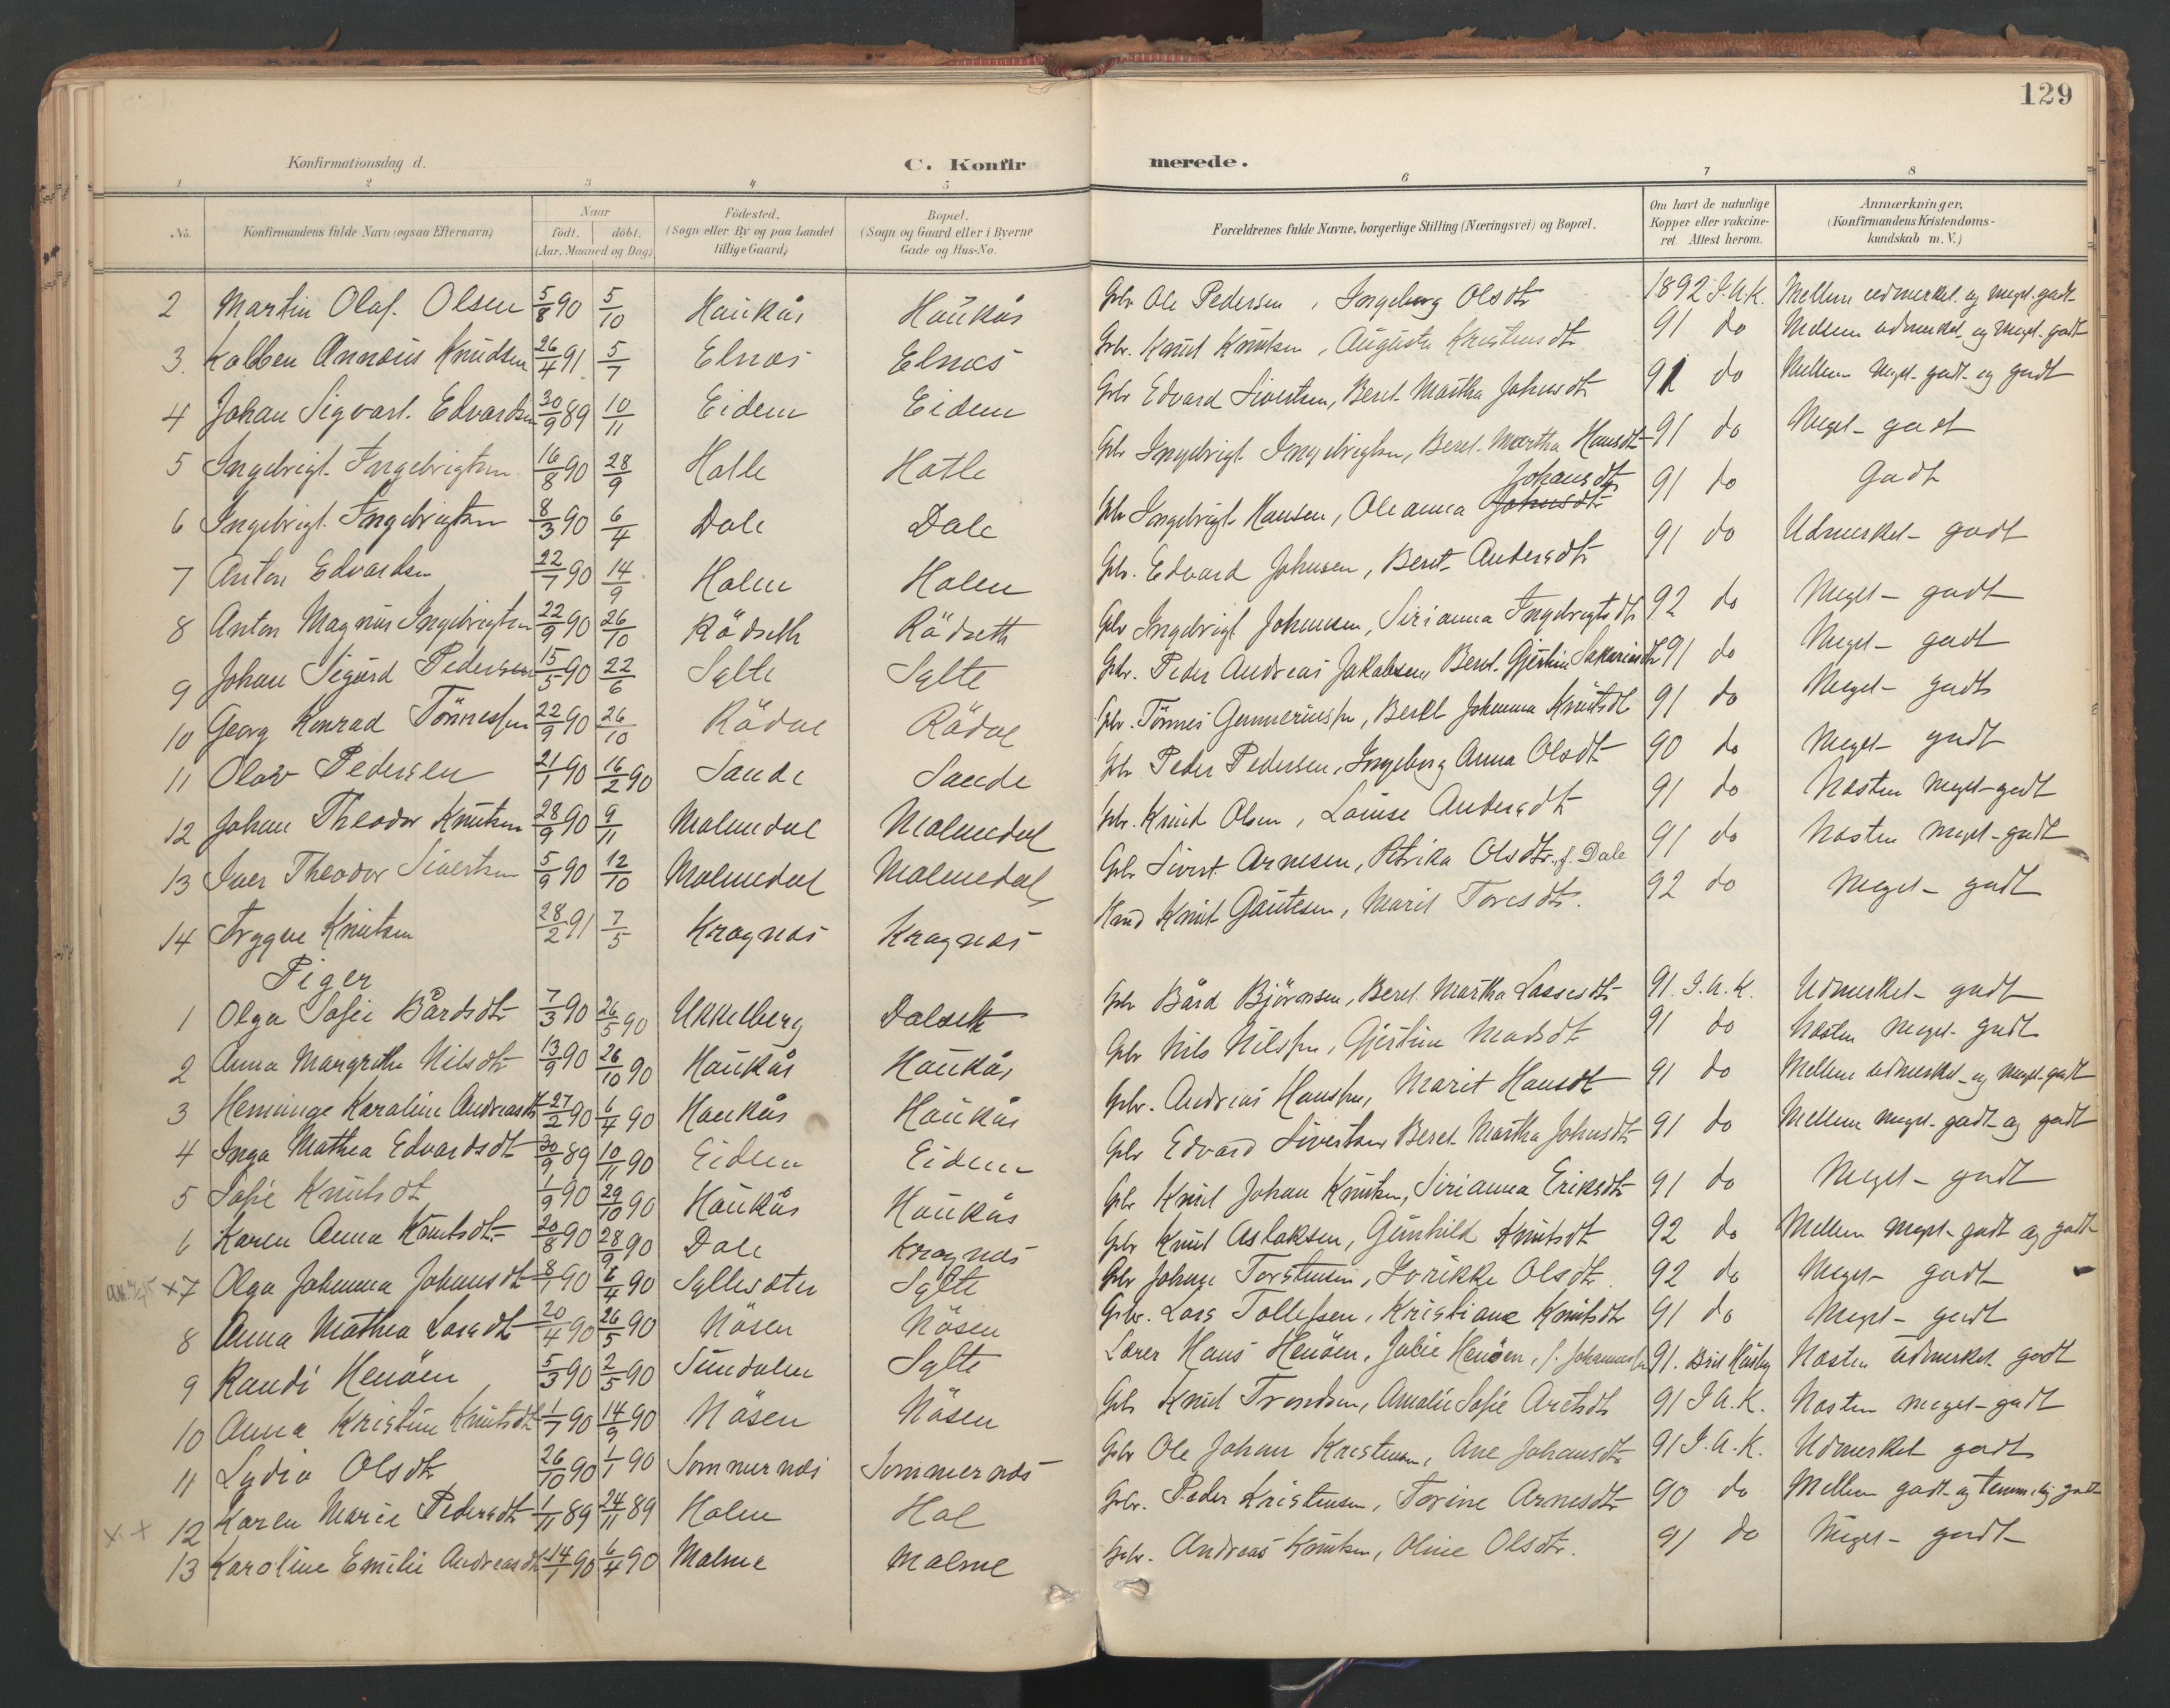 129
Konfirmationsdag d.
C. Konfir merede.
1 2 3 4 5 6 7 8
No. Konfirmandens fulde Navn (ogsaa Efternavn) Naar født. døbt. (Aar, Maaned og Dag) Födested. (Sogn eller By og paa Landet tillige Gaard) Bopæl. (Sogn og Gaard eller i Byerne Gade og Hus-No. Forældrenes fulde Navne, borgerlige Stilling (Næringsvei) og Bopæl. Om havt de naturlige Kopper eller vakcineret. Attest herom. Anmærkninger, (Konfirmandens Kristendomskundskab m. V.)
2 Martin Olaf. Olsen 5/8 90 5/10 Haukås Haukås Gbr Ole Pedersen, Ingeborg Olsdtr 1892 J.A.K. Mellem udmerket og meget godt
3. Kolben Annæus Knudsen 26/4 91 5/7 Elnæs Elnæs Gbr. Knud Knutsen, Augusta Kristensdtr 91 do Mellem udmerket og meget godt
4 Johan Sigvart Edvardsen 30/9 89 10/11 Eidem Eidem Gbr Edvard Sivertsen, Beret Martha Johnsdtr 91 do Mellem meget godt og godt
5 Ingebrigt Ingebrigtsen 16/8 90 28/9 Hatle Hatle Gbr Ingebrigt Ingebrigtsen, Beret Martha Hansdtr 91 do Meget godt
6 Ingebrigt Ingebrigtsen 8/3 90 6/4 Dale Dale Gbr Ingebrigt Hansen, Oleanna Johnsdtr Johansdtr 91 do Godt
7 Anton Edvardsen 22/7 90 14/9 Holen Holen Gbr. Edvard Johnsen, Beret Andersdtr 91 do Udmerket godt
8 Anton Magnus Ingebrigtsen 22/9 90 26/10 Rödseth Rödseth Gbr Ingebrigt Johnsen, Sirianna Ingebrigtsdtr 92 do Meget godt
9 Johan Sigurd Pedersen 15/5 90 22/6 Sylte Sylte Gbr. Peder Andreas Jakobsen, Beret Gjertine Sakariasdtr 91 do Meget godt
10 Georg Konrad Tönnessen 22/9 90 26/10 Rödal Rödal Gbr. Tönnes Gunneriussen, Beret Johanna Knutsdt 91 do Meget godt
11 Olav Pedersen 21/1 90 16/2 90 Sande Sande Gbr Peder Pedersen, Ingeborg Anna Olsdtr 90 do Meget godt
12 Johan Theodor Knutsen 28/9 90 9/11 Malmedal Malmedal Gbr. Knud Olsen, Louise Andersdt 91 do Næsten meget godt
13 Iver Theodor Sivertsen 5/9 90 12/10 Malmedal Malmedal Gbr Sivert Arnesen, Petrika Olsdtr. f. Dale 91 do Næsten meget godt
14 Trygve Knutsen 28/2 91 7/5 Kragnæs Kragnæs Hmd Knut Gautesen, Marit Toresdtr. 92 do Meget godt
Piger
1 Olga Sofie Bårdsdtr 7/3 90 26/5 90 Ukkelberg Dalseth Gbr Bård Björnsen, Beret Martha Lassesdtr 91. J.A.K. Udmerket godt
2 Anna Margrethe Nilsdtr 13/9 90 26/10 90 Haukås Haukås Gbr Nils Nilssen, Gjertine Madsdt 91 do Næsten meget godt
3 Henninge Karoline Andreasdtr 27/2 90 6/4 90 Haukås Haukås Gbr. Andreas Hanssen, Marit Hansdt 91 do Mellem udmerket og meget godt
4 Inga Mathea Edvardsdt 30/9 89 10/11 90 Eidem Eidem Gbr Edvard Sivertsen Beret Martha Johnsdtr 91 do Mellem meget godt og godt
5 Sofie Knutsdt 1/9 90 29/10 90 Haukås Haukås Gbr Knut Johan Knutsen, Sirianna Eriksdtr 91 do Meget godt
6 Karen Anna Knutsdtr 20/8 90 28/9 90 Dale Kragnæs Gbr Knut Aslaksen, Gunhild Knutsdt 92 do Mellem meget godt og godt
x7 Olga Johanna Johansdt 8/1 90 6/4 90 Sylteseter Sylte Gbr Johan Torstensen, Lovikke Olsdtr. 92 do Meget godt
8 Anna Mathea Larsdt 20/4 90 26/5 90 Nösen Nösen Gbr. Lars Tollefsen, Kristiane Knutsdtr 91 do Meget godt
9 Randi Henöen 5/3 90 2/5 90 Sundalen Sylte Lærer Hans Henöen, Julie Henöen, f. Johannessen 91. Brit Husby Næsten udmerket godt
10 Anna Kristine Knutsdt 1/7 90 14/9 90 Nösen Nösen Gbr Knut Trondsen, Amalie Sofie Aretsdtr 91 J A.K. Næsten meget godt
11 Lydia Olsdtr 26/10 90 1/1 90 Sommernæs Sommernæs Gbr Ole Johan Kristensen, Ane Johansdtr 91 J.A.K. Udmerket godt
x + 12 Karen Marie Pedersdtr 1/11 89 24/11 89 Holen Hol Gbr. Peder Kristensen, Torine Arnesdtr 90 do Mellem godt og temmelig godt
13 Karoline Emilie Andreasdtr 14/1 90 6/4 90 Malme Malme Gbr. Andreas Knutsen, Oline Olsdtr. 91 do Meget godt